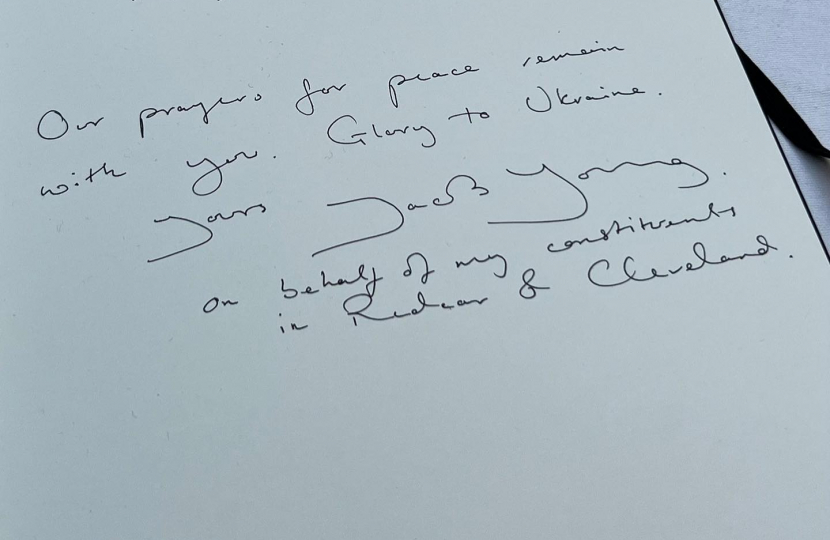 Our prayers for peace remain
with you. Glory to Ukraine.
Yours Jacob Young.
on behalf of my constituents
in Redcar & Cleveland.